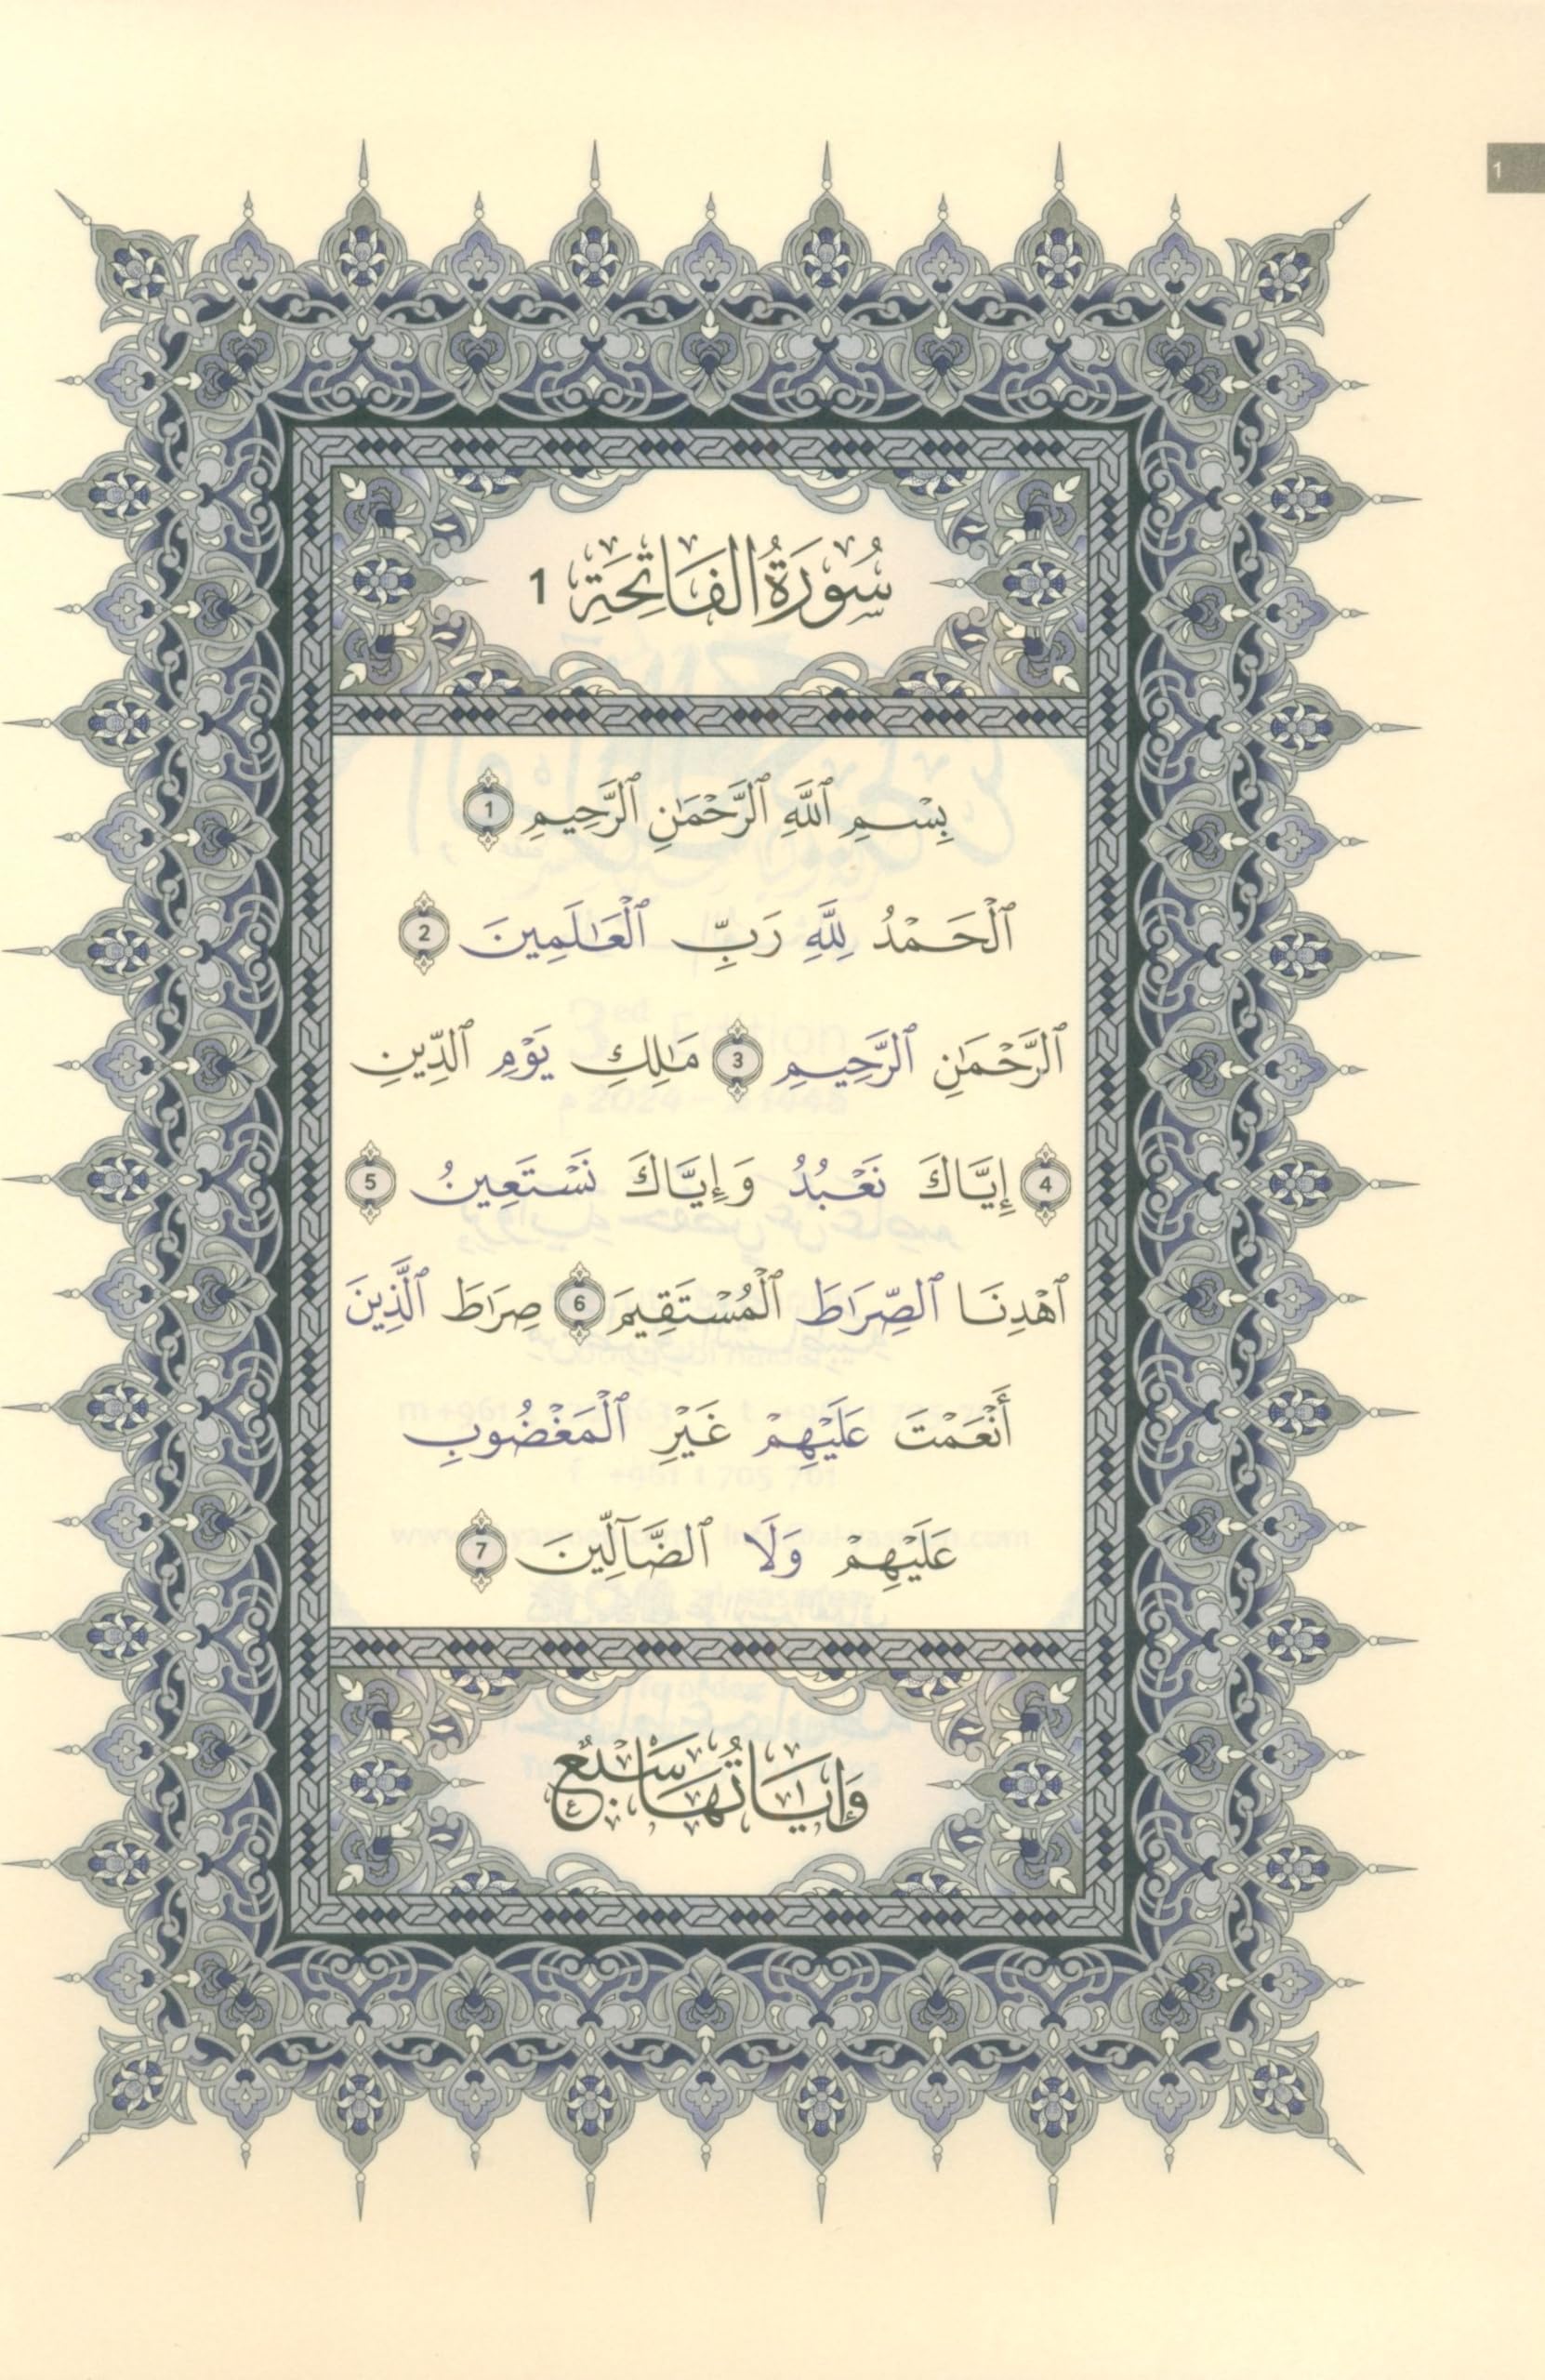 1
سُورَةُ الفَاتِحَةِ 1
بِسْمِ ٱللَّهِ ٱلرَّحْمَٰنِ ٱلرَّحِيمِ 1
ٱلْحَمْدُ لِلَّهِ رَبِّ ٱلْعَٰلَمِينَ 2
ٱلرَّحْمَٰنِ ٱلرَّحِيمِ 3 مَٰلِكِ يَوْمِ ٱلدِّينِ
4 إِيَّاكَ نَعْبُدُ وَإِيَّاكَ نَسْتَعِينُ 5
ٱهْدِنَا ٱلصِّرَٰطَ ٱلْمُسْتَقِيمَ 6 صِرَٰطَ ٱلَّذِينَ
أَنْعَمْتَ عَلَيْهِمْ غَيْرِ ٱلْمَغْضُوبِ
عَلَيْهِمْ وَلَا ٱلضَّآلِّينَ 7
وَاٰيَاتُهَا سَبْعٌ